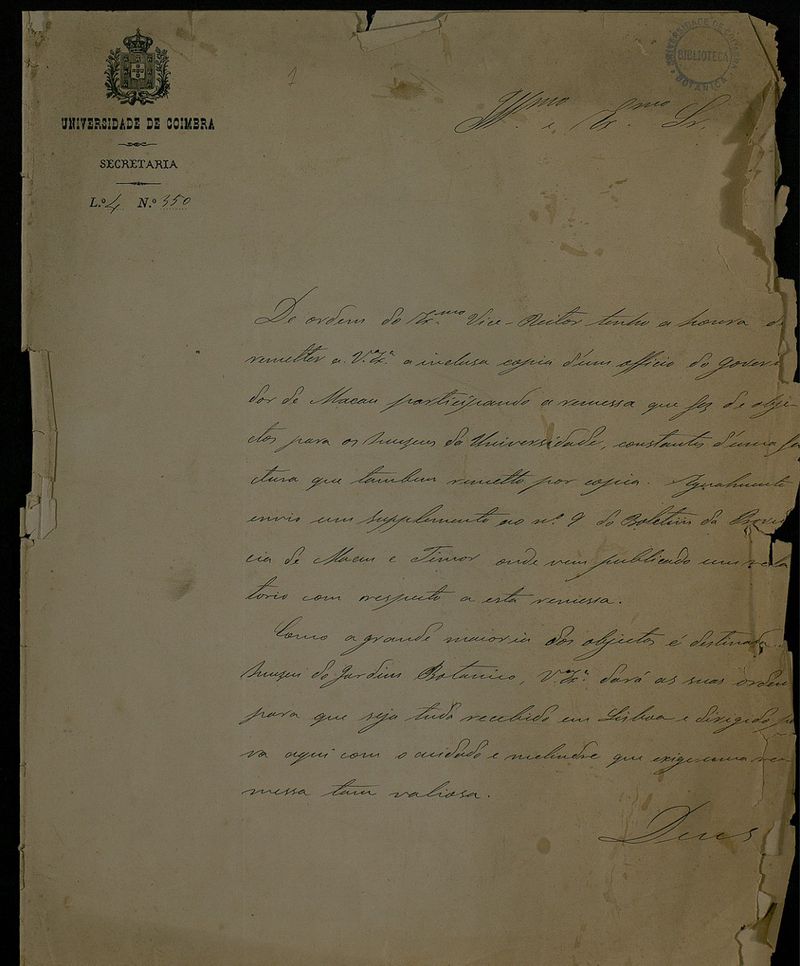 UNIVERSIDADE DE COIMBRA
SECRETARIA
L.º 4 N.º 350
1
UNIVERSIDADE DE COIMBRA
BIBLIOTECA
BOTANICA
Ill.mo e Ex.mo Sr.
De ordem do Ex.mo Vice-Reitor tenho a honra d
remetter a V.ª Ex.ª a inclusa copia d'um officio do Govern
dor de Macau participando a remessa que fez de obje
ctos para os museus da Universidade, constantes d'uma fa
ctura que tambem remetto por copia. Igualmente
envio um supplemento ao nº 9 do Boletim da Provin
cia de Macau e Timor onde vem publicado um rela
torio com respeito a esta remessa.
Como a grande maioria dos objectos é destinada
museu do Jardim Botanico, V.ª Ex.ª dará as suas orden
para que seja tudo recebido em Lisboa e dirigido pa
ra aqui com o cuidado e melindre que exige uma re
messa tam valiosa.
Deus